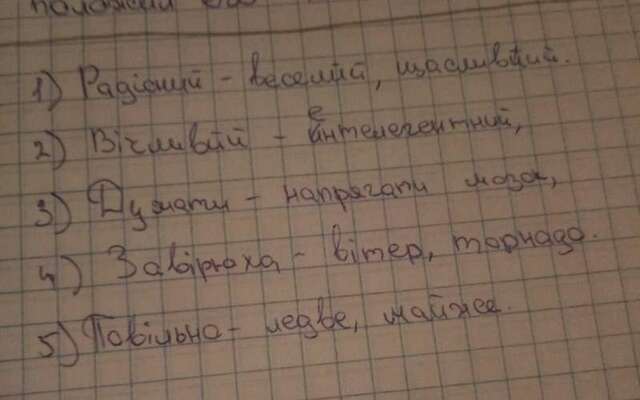 положени
1) Радісний - веселий, щасливий.
2) Вічливий - интелегентний,
3) Думати - напрягати мозок,
4) Завірюха - вітер, торнадо.
5) Повільно - ледве, майже.